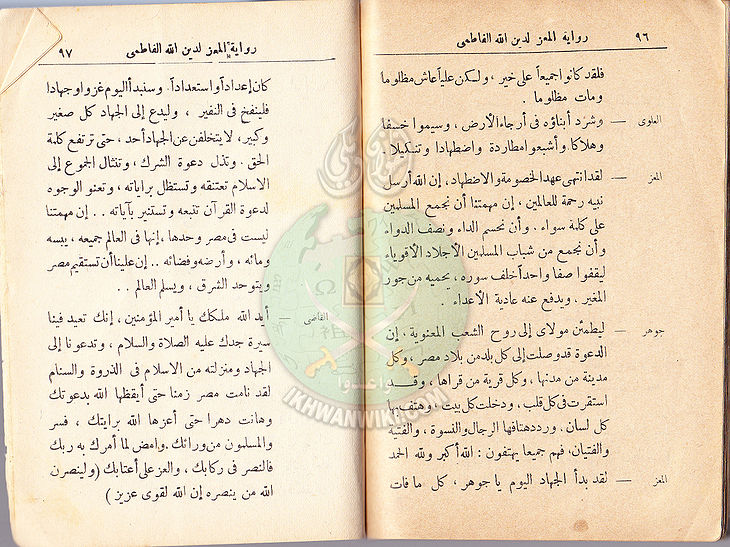 ٩٦ رواية المعز لدين الله الفاطمى
فلقد كانوا جميعاً على خير ، ولكن علياً عاش مظلوما
ومات مظلوما .
العلوى — وشرد أبناؤه فى أرجاء الأرض ، وسيموا خسفا
وهلاكا وأشبعوا مطاردة واضطهادا وتنكيلا .
المعز — لقد انتهى عهد الخصومة والاضطهاد ، إن الله أرسل
نبيه رحمة للعالمين ، إن مهمتنا أن نجمع المسلمين
على كلمة سواء ، وأن نحسم الداء ونصف الدواء
وأن نجمع من شباب المسلمين الأجلاد الأقوياء
ليقفوا صفا واحداً خلف سوره ، يحميه من جور
المغير ، ويدفع عنه عادية الأعداء .
جوهر — ليطمئن مولاى إلى روح الشعب المعنوية . إن
الدعوة قد وصلت إلى كل بلد من بلاد مصر ، وكل
مدينة من مدنها ، وكل قرية من قراها ، وقد
استقرت فى كل قلب ، ودخلت كل بيت ، وهتف بها
كل لسان . ورددهتافها الرجال والنسوة ، والفتية
والفتيان، فهم جميعا يهتفون : الله أكبر ولله الحمد
المعز — لقد بدأ الجهاد اليوم يا جوهر ، كل ما فات
رواية المعز لدين الله الفاطمى ٩٧
كان إعداداً واستعداداً. وسنبدأ اليوم غزوا وجهادا
فلينفخ فى النفير ، وليدع إلى الجهاد كل صغير
وكبير، لا يتخلفن عن الجهاد أحد ، حتى ترتفع كلمة
الحق . وتذل دعوة الشرك ، وتنثال الجموع إلى
الاسلام تعتنقه وتستظل براياته ، وتعنو الوجوه
لدعوة القرآن تتبعه وتستنير بآياته . . إن مهمتنا
ليست فى مصر وحدها ، إنها فى العالم جميعه ، يبسه
ومائه ، وأرضه وفضائه . . إن علينا أن تستقيم مصر
ويتوحد الشرق ، ويسلم العالم . .
القاضى — أيد الله ملكك يا أمير المؤمنين ، إنك تعيد فينا
سيرة جدك عليه الصلاة والسلام ، وتدعونا إلى
الجهاد ومنزلته من الاسلام فى الذروة والسنام
لقد نامت مصر زمنا حتى أيقظها الله بدعوتك
وهانت دهرا حتى أعزها الله برايتك ، فسر
والمسلمون من ورائك . وامض لما أمرك به ربك
فالنصر فى ركابك ، والعز على أعتابك ( ولينصرن
الله من ينصره إن الله لقوى عزيز )
وأعدوا
IKHWANWIKI.COM